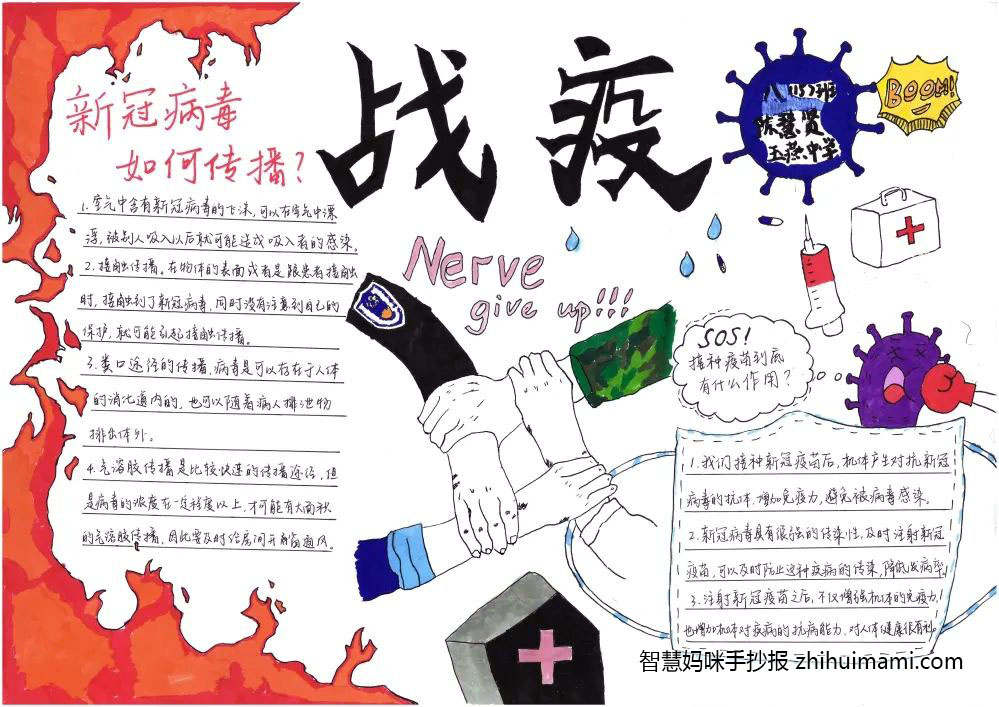 战疫
八(15)班
陈慧贤
玉燕中学
BOOM!
新冠病毒
如何传播?
1.空气中含有新冠病毒的飞沫,可以在空气中漂
浮,被别人吸入以后就可能造成吸入者的感染。
2.接触传播。在物体的表面或者是跟患者接触
时,接触到了新冠病毒,同时没有注意到自己的
保护,就可能引起接触传播。
3.粪口途径的传播,病毒是可以存在于人体
的消化道内的,也可以随着病人排泄物
排出体外。
4.气溶胶传播是比较快速的传播途径,但
是病毒的浓度在一定程度以上,才可能有大面积
的气溶胶传播,因此要及时给房间开窗通风。
Nerve
give up!!!
SOS!
接种疫苗到底
有什么作用?
1.我们接种新冠疫苗后,机体产生对抗新冠
病毒的抗体,增加免疫力,避免被病毒感染。
2.新冠病毒具有很强的传染性,及时注射新冠
疫苗,可以及时防止这种疾病的传染,降低发病率。
3.注射新冠疫苗之后,不仅增强机体的免疫力,
也增加机体对疾病的抗病能力,对人体健康很有利。
智慧妈咪手抄报 zhihuimami.com